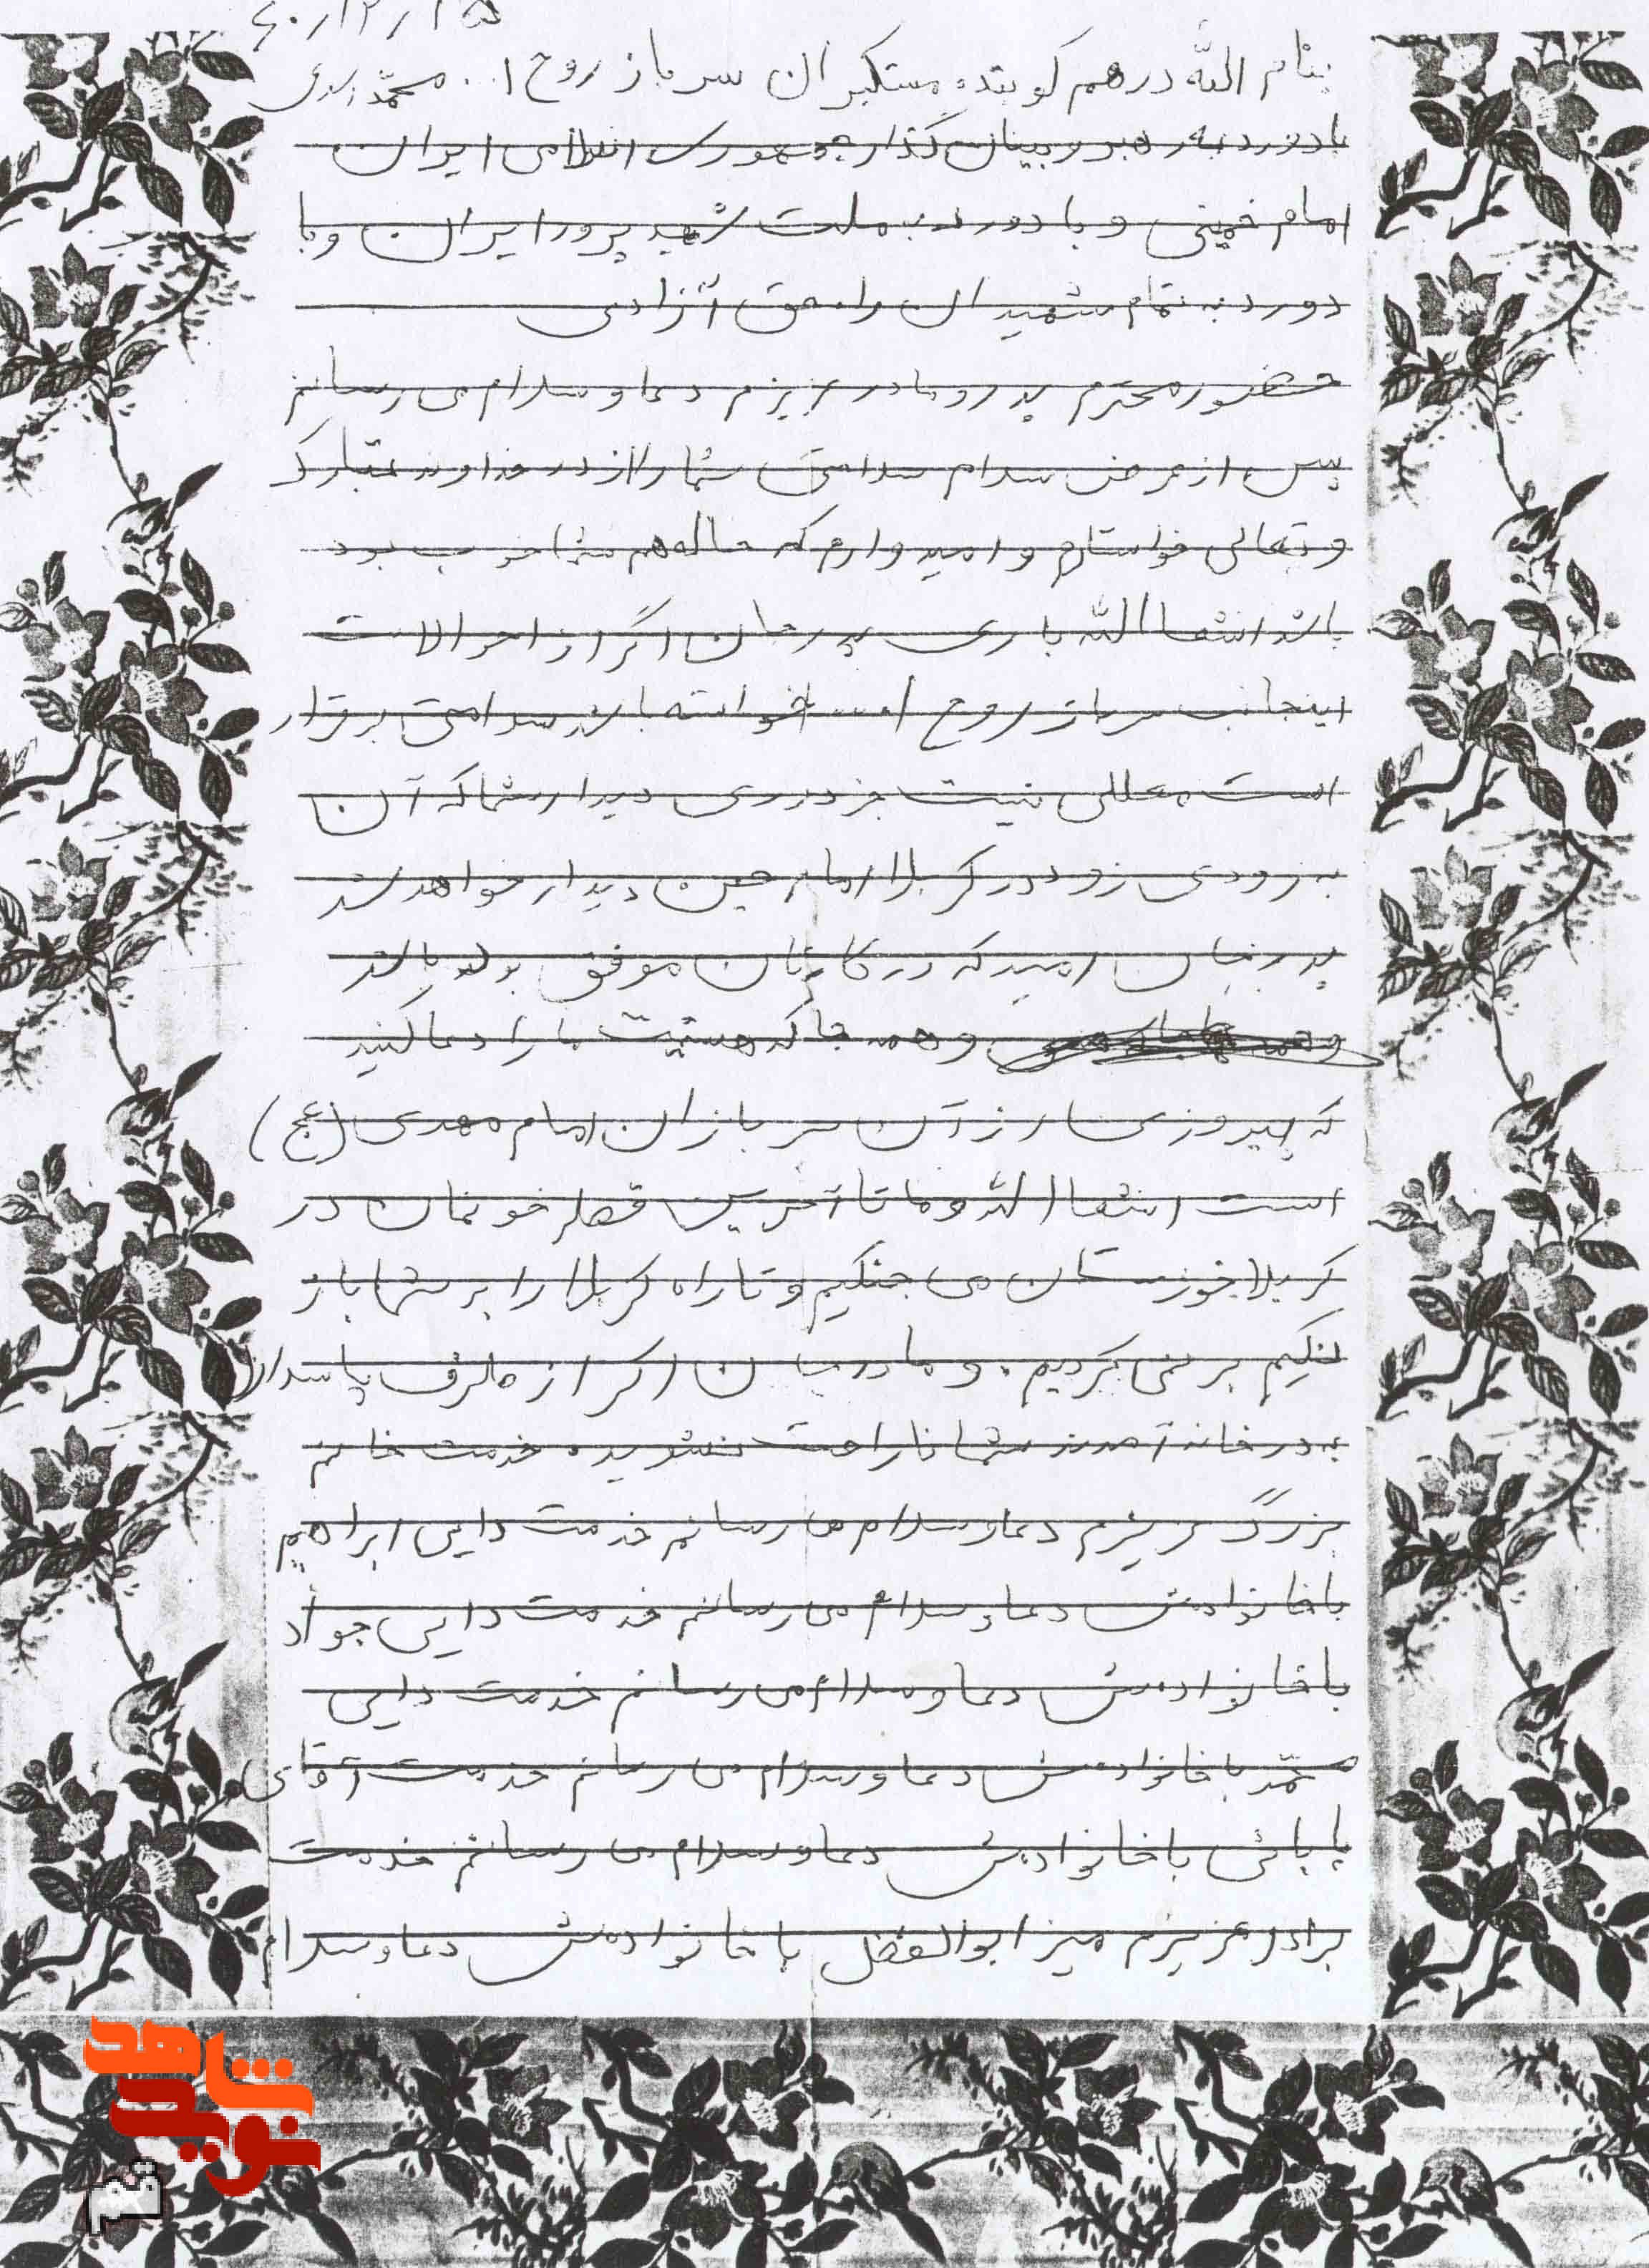 ۶۰/۱۲/۱۵
بنام اللّه درهم کوبنده مستکبران سرباز روح ا... محمّد
با درود به رهبر و بنیان گذار جمهوری اسلامی ایران
امام خمینی و با دورد به ملت شهید پرور ایران و با
دورد به تمام شهیدان راه حق آزادی
حضور محترم پدر و مادر عزیزم دعا و سلام می رسانم
پس از عرض سلام سلامتی شما را از در خداوند تبارک
و تعالی خواستارم و امیدوارم که حاله هم شما خوب بود
باشد انشاالله باری پدر جان اگر از احوالات
اینجانب سرباز روح ا... خواسته باشد سلامتی برقرار
است مللی نیست جز دوری دیدار شما که آن
به زودی زود در کربلا امام حسین دیدار خواهد شد
پدر جان امید که در کارتان موفق بوده باشد
و همه جا که هستیت ما را دعا کنید
که پیروزی ما از آن سربازان امام مهدی (عج)
است انشاالله و ما تا آخرین قطر خونمان در
کربلا خوزستان می جنگیم و تا راه کربلا را بر شما باز
نکنیم بر نمی گردیم. و مادر جان اگر از طرف پاسداران
به در خانه آمدند شما ناراحت نشوید. خدمت خانم
بزرگ عزیزم دعا و سلام می رسانم خدمت دایی ابراهیم
با خانوادهش دعا و سلام می رسانم خدمت دایی جواد
با خانوادهش دعا و سلام می رسانم خدمت دایی
محمّد با خانوادهش دعا و سلام می رسانم خدمت آقای
بابائی با خانوادهش دعا و سلام می رسانم خدمت
برادر عزیزم میرزا ابوالفضل با خانوادهش دعا و سلام
نوید شاهد
قم